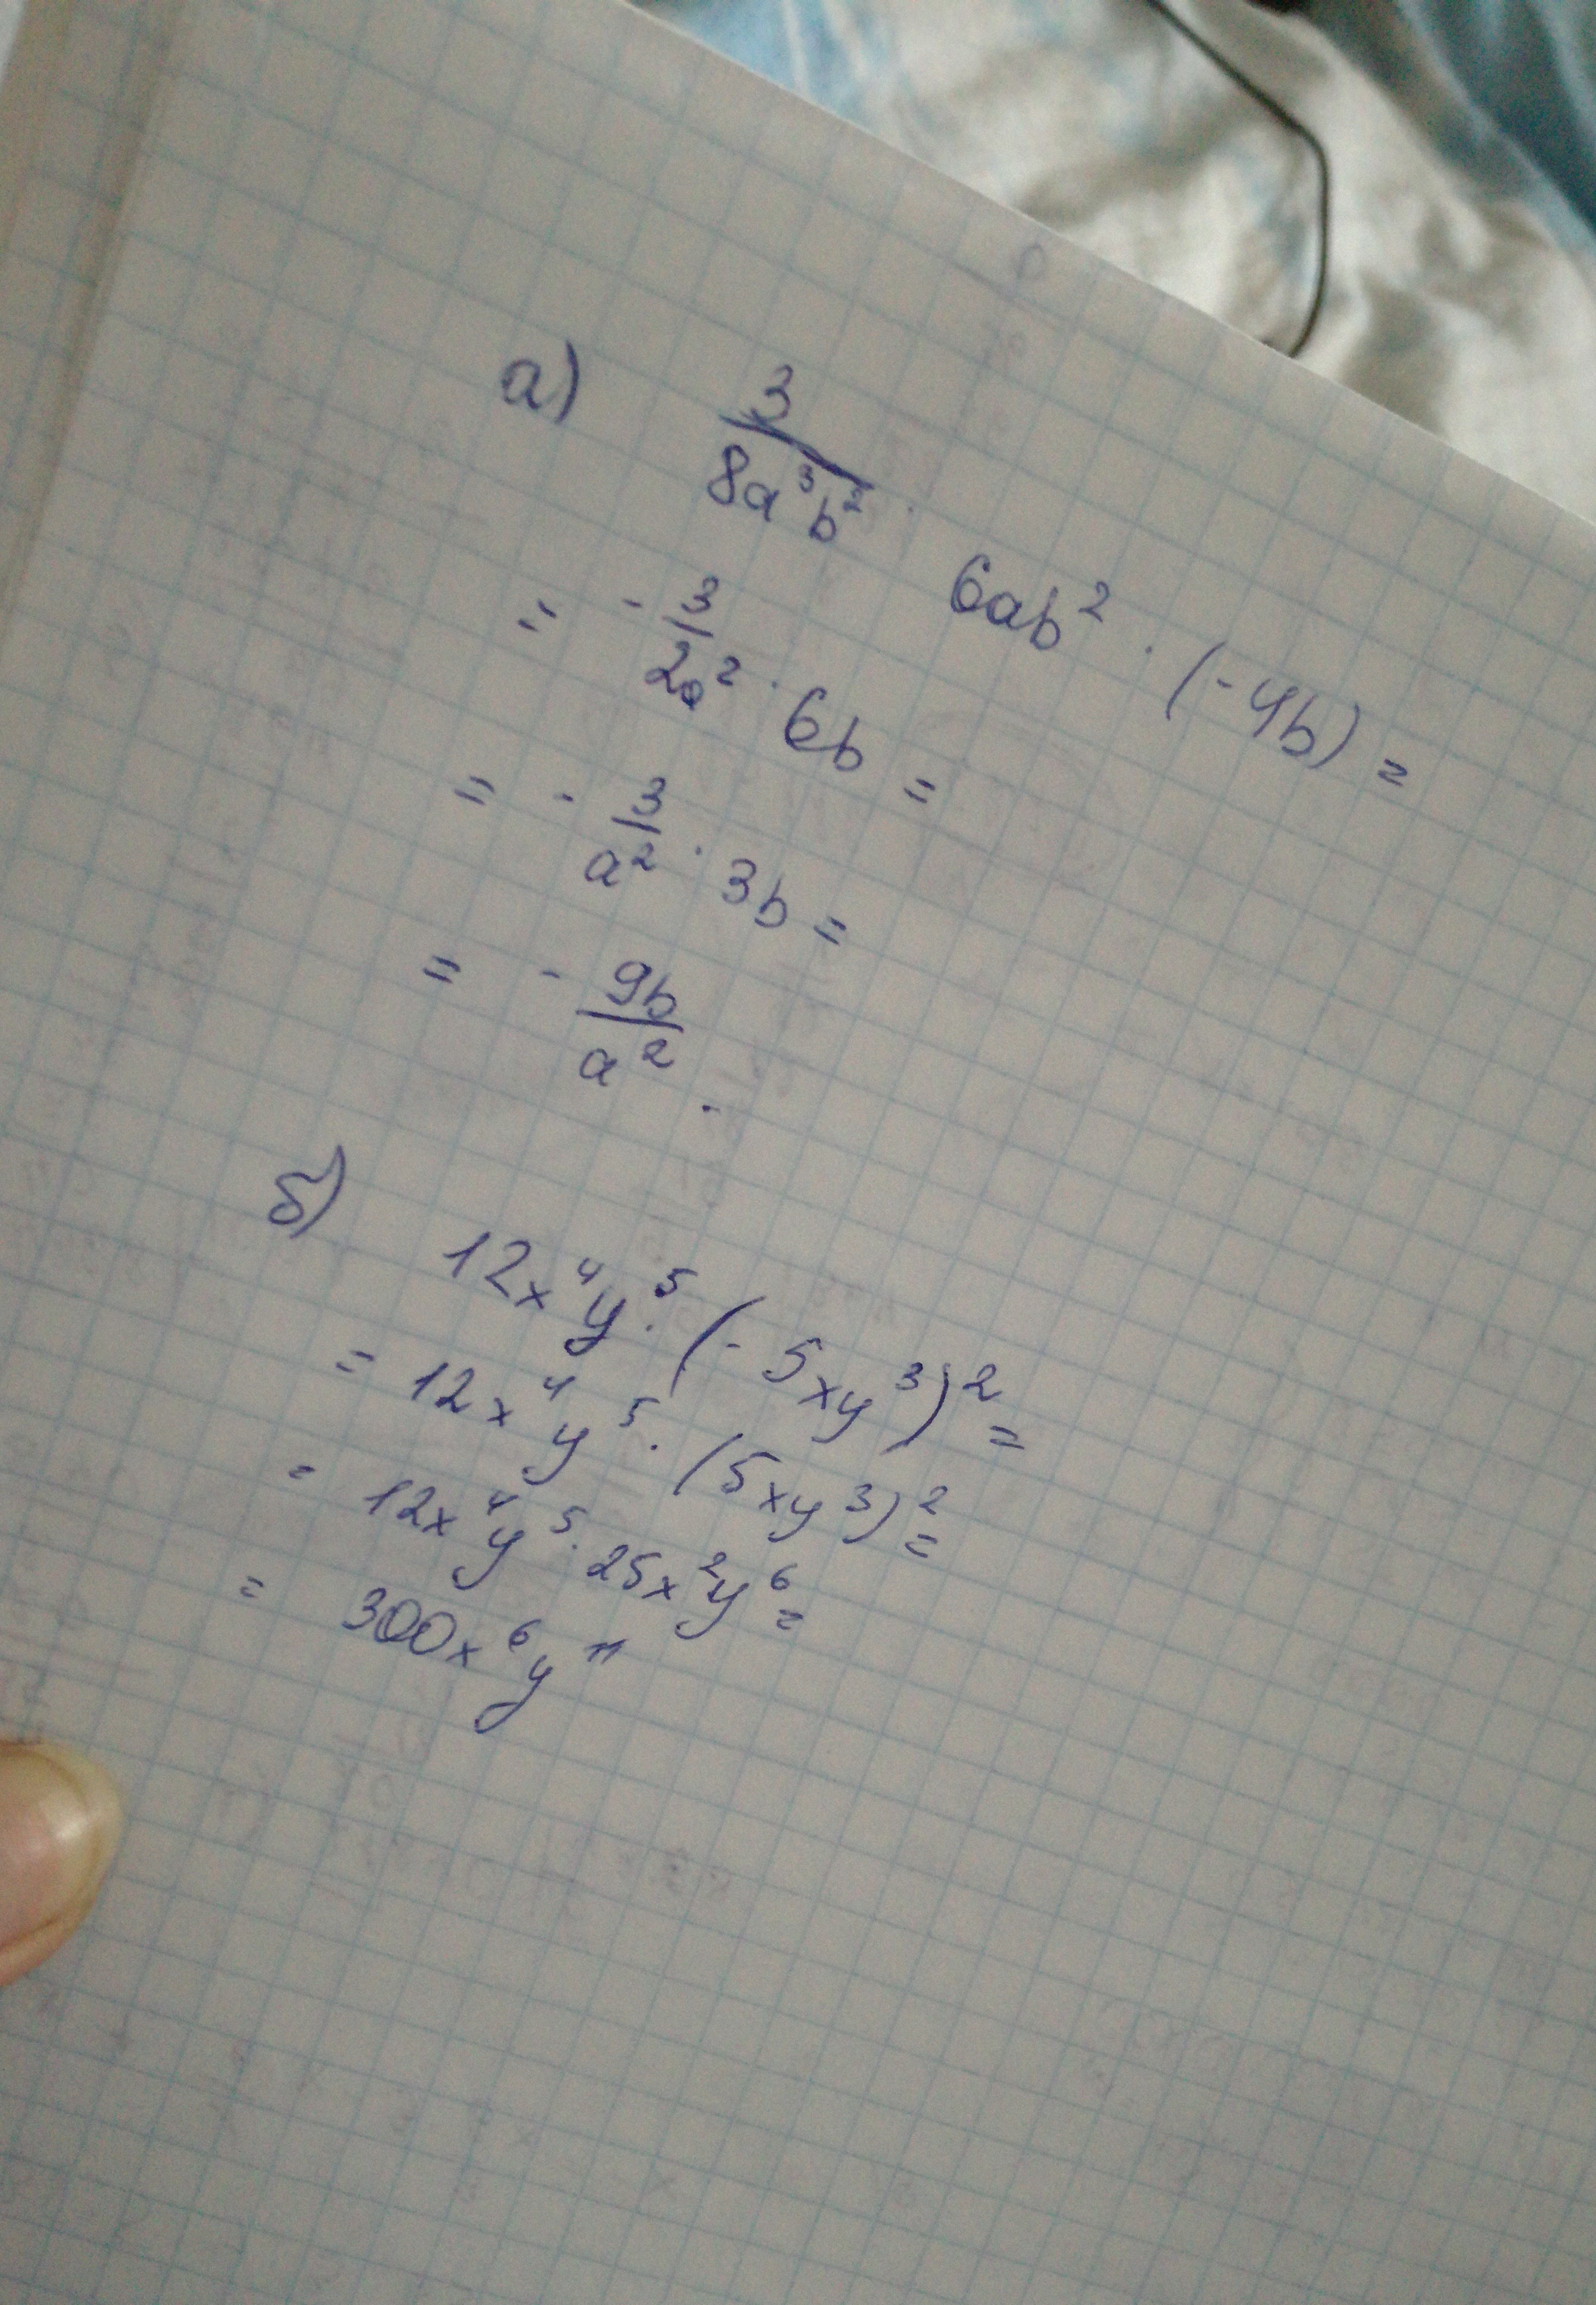 а) 3/(8a³b²) · 6ab² · (-4b) =
= - 3/(2a²) · 6b =
= - 3/a² · 3b =
= - 9b/a² .
б) 12x⁴y⁵ · (- 5xy³)² =
= 12x⁴y⁵ · (5xy³)² =
= 12x⁴y⁵ · 25x²y⁶ =
= 300x⁶y¹¹